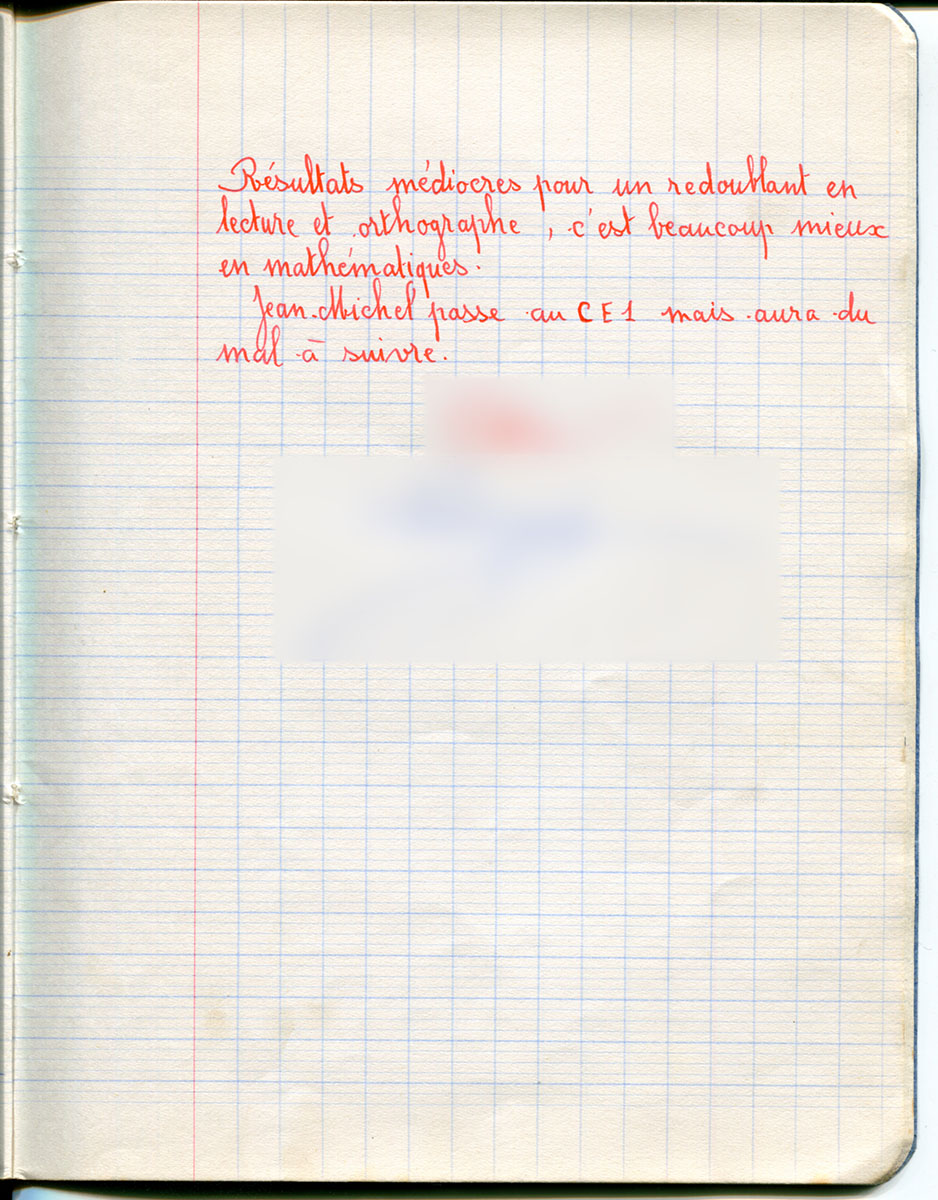 Résultats médiocres pour un redoublant en
lecture et orthographe, c'est beaucoup mieux
en mathématiques.
Jean-Michel passe au CE1 mais aura du
mal à suivre.